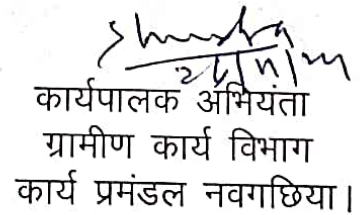 कार्यपालक अभियंता
ग्रामीण कार्य विभाग
कार्य प्रमंडल नवगछिया।